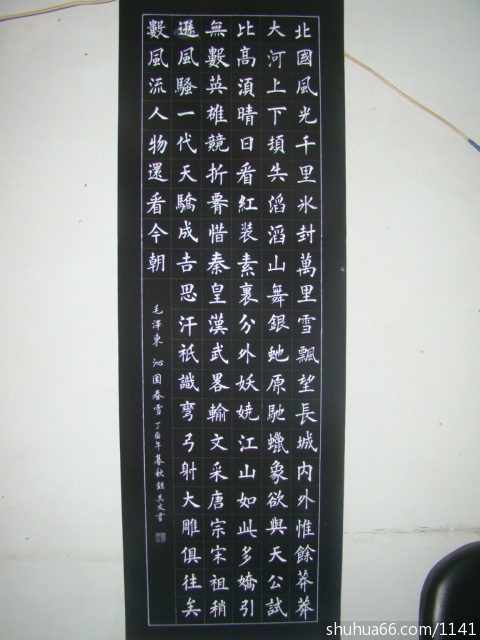 北國風光千里氷封萬里雪飄望長城内外惟餘莽莽
大河上下頓失滔滔山舞銀虵原馳蠟象欲與天公試
比高須晴日看紅裝素裹分外妖嬈江山如此多嬌引
無數英雄競折腰惜秦皇漢武畧輸文采唐宗宋祖稍
遜風騷一代天驕成吉思汗祇識彎弓射大雕俱往矣
數風流人物還看今朝
毛澤東 沁園春雪 丁酉年暮秋 文書
shuhua66.com/1141